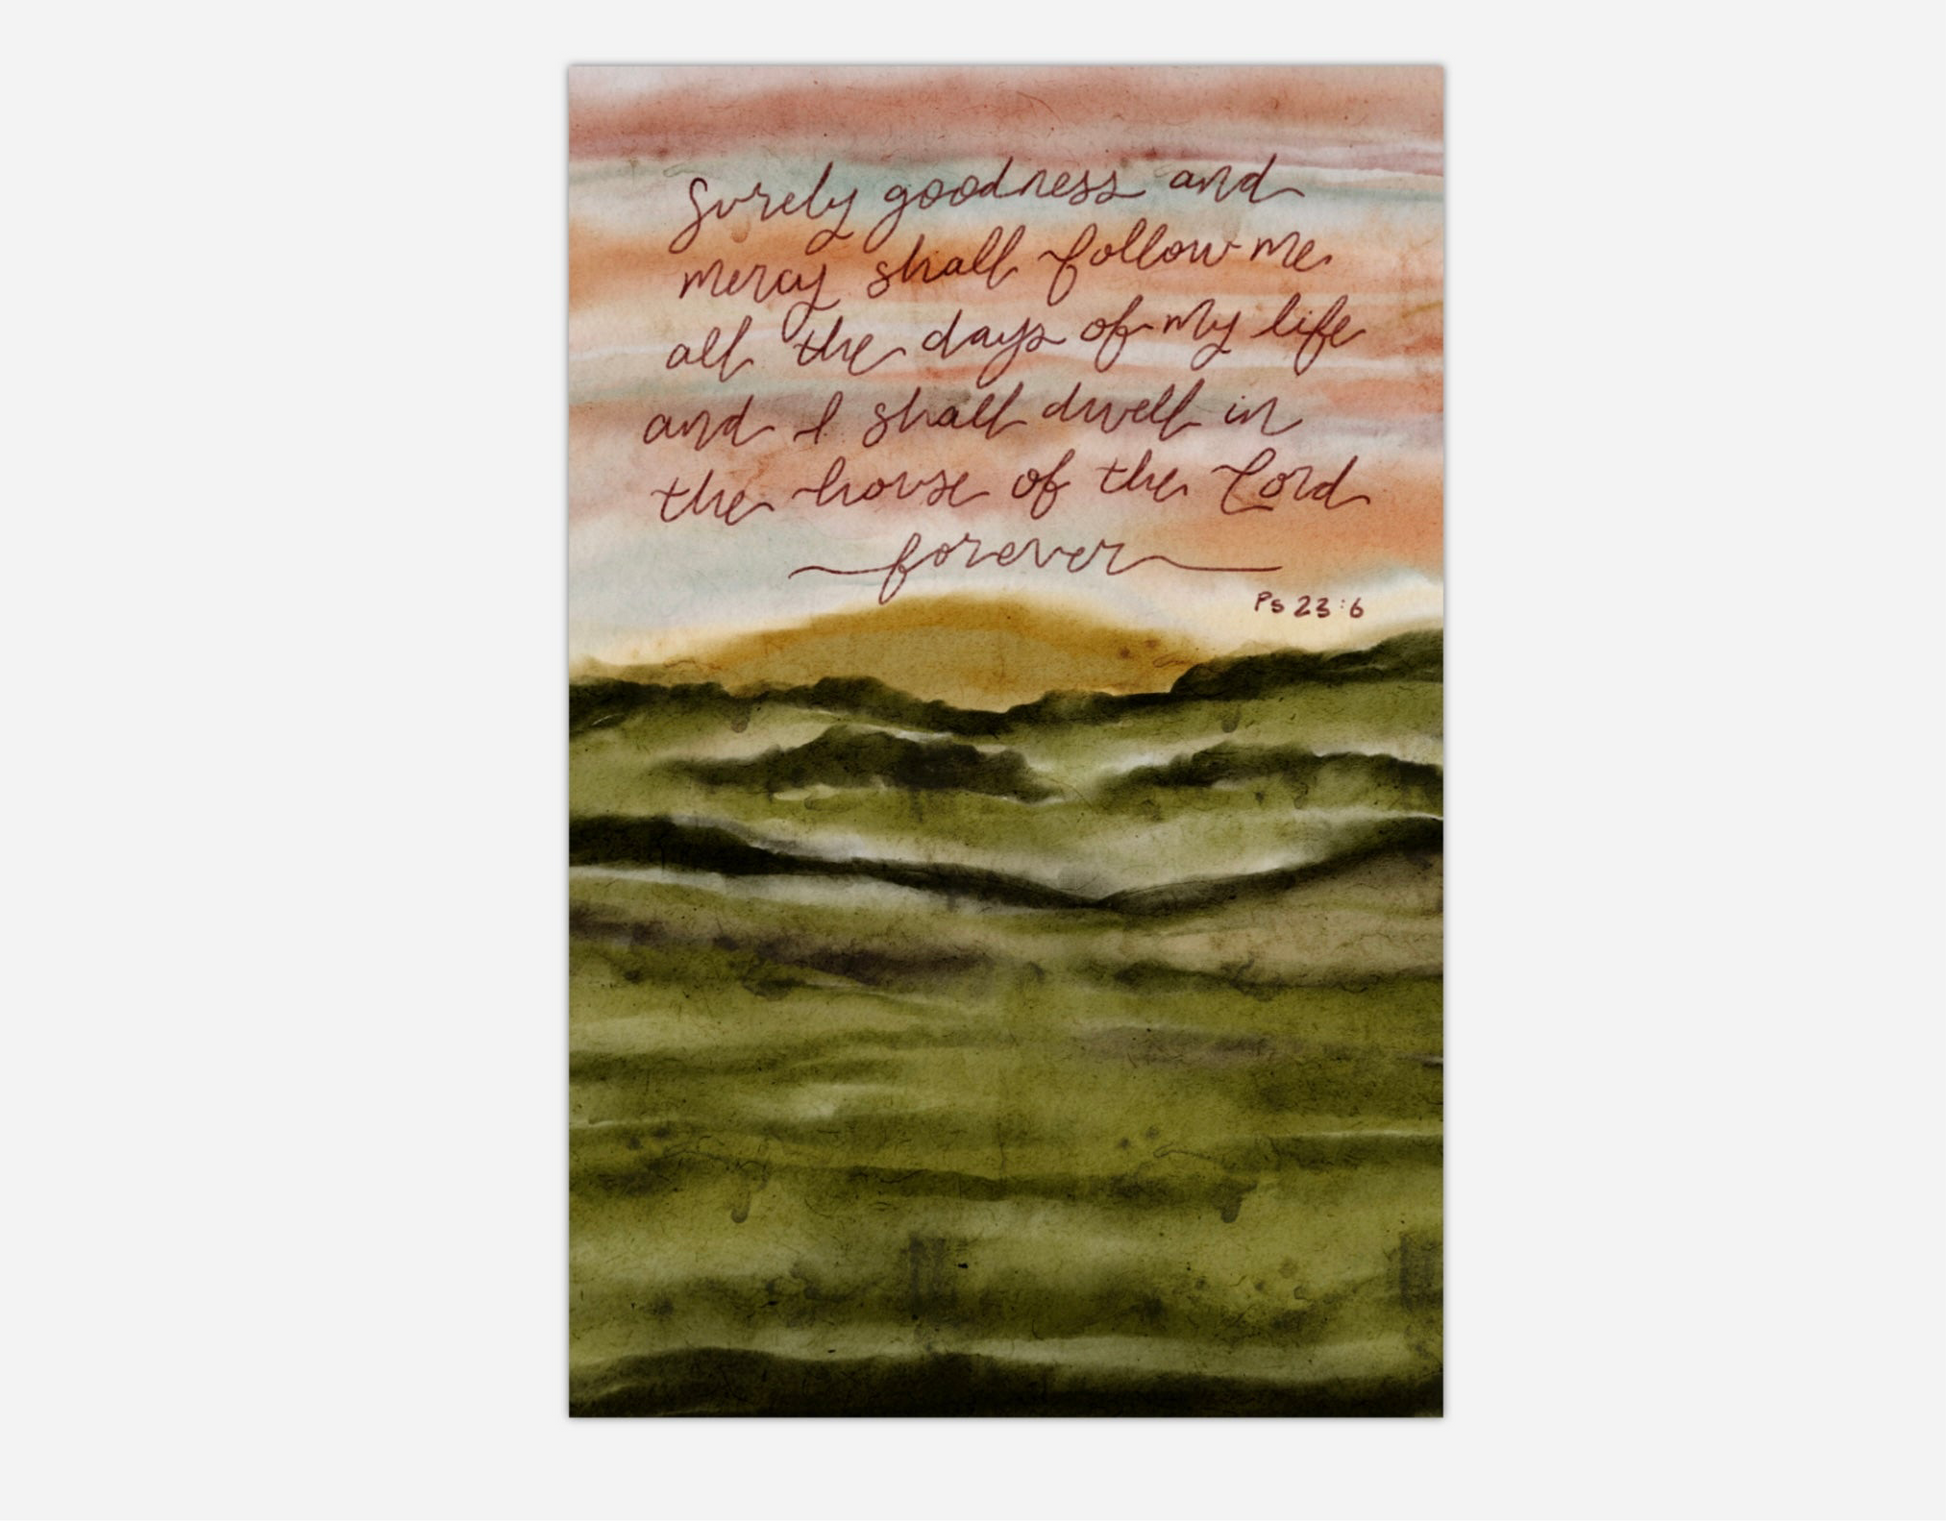 Surely goodness and
mercy shall follow me
all the days of my life
and I shall dwell in
the house of the Lord
forever
Ps 23:6